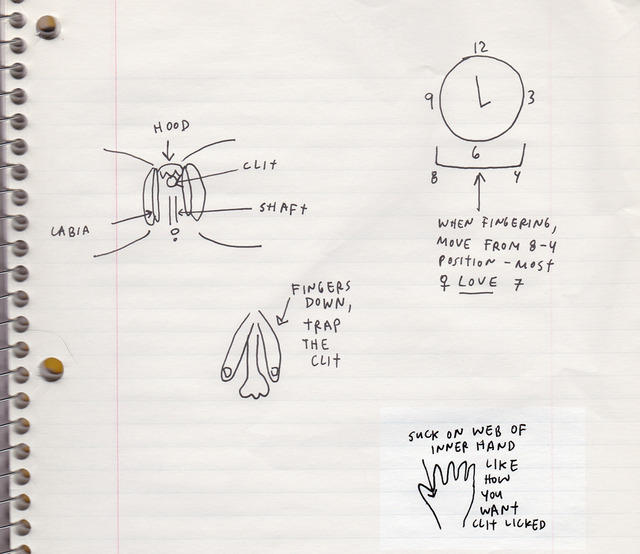 HOOD
CLIT
SHAFT
LABIA
12
9
3
6
8
4
WHEN FINGERING,
MOVE FROM 8-4
POSITION - MOST
♀ LOVE 7
FINGERS
DOWN,
TRAP
THE
CLIT
SUCK ON WEB OF
INNER HAND
LIKE
HOW
YOU
WANT
CLIT LICKED